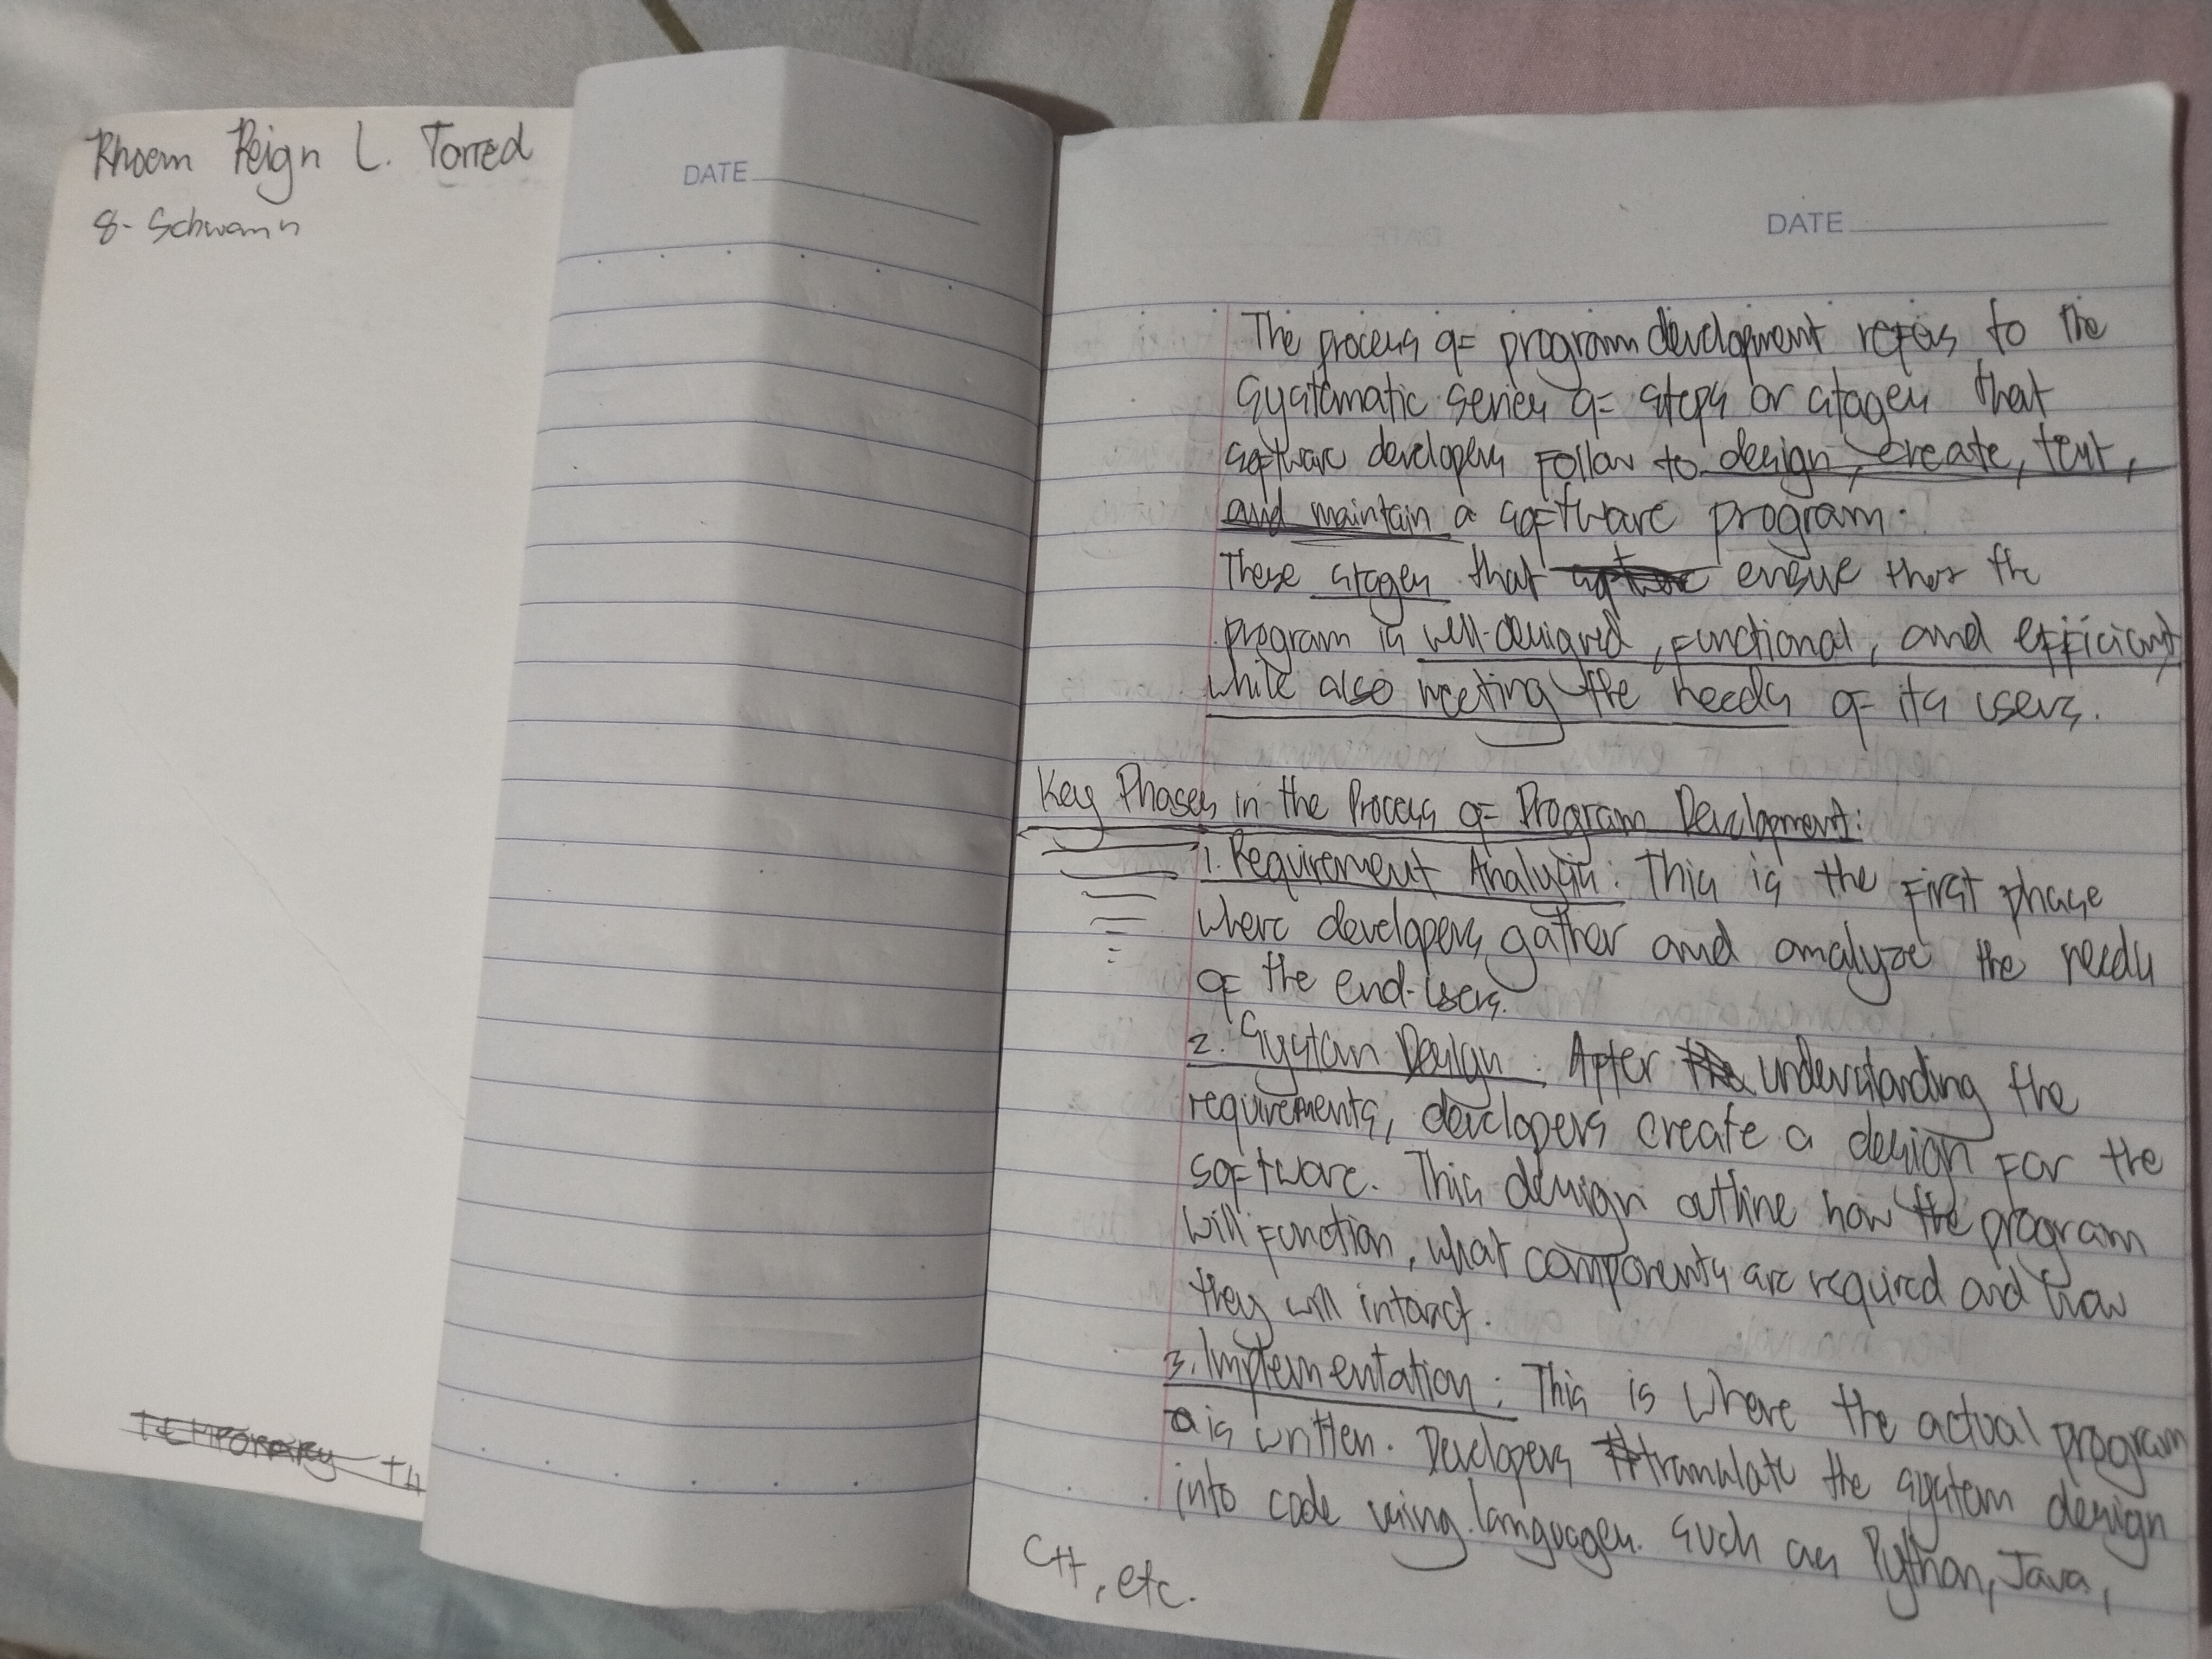 Rhoem Reign L. Torred
8- Schwann
TEMPORARY
DATE
DATE
The process of program development refers to the
systematic series of steps or stages that
software developers follow to design, create, test,
and maintain a software program.
These stages that ensue that the
program is well-designed, functional, and efficient
while also meeting the needs of its users.
Key Phases in the Process of Program Development:
1. Requirement Analysis: This is the first phase
where developers gather and analyze the needs
of the end-users.
2. System Design: After the understanding the
requirements, developers create a design for the
software. This design outline how the program
will function, what components are required and how
they will interact.
3. Implementation: This is where the actual program
is written. Developers translate the system design
into code using languages. such as Python, Java,
C++, etc.